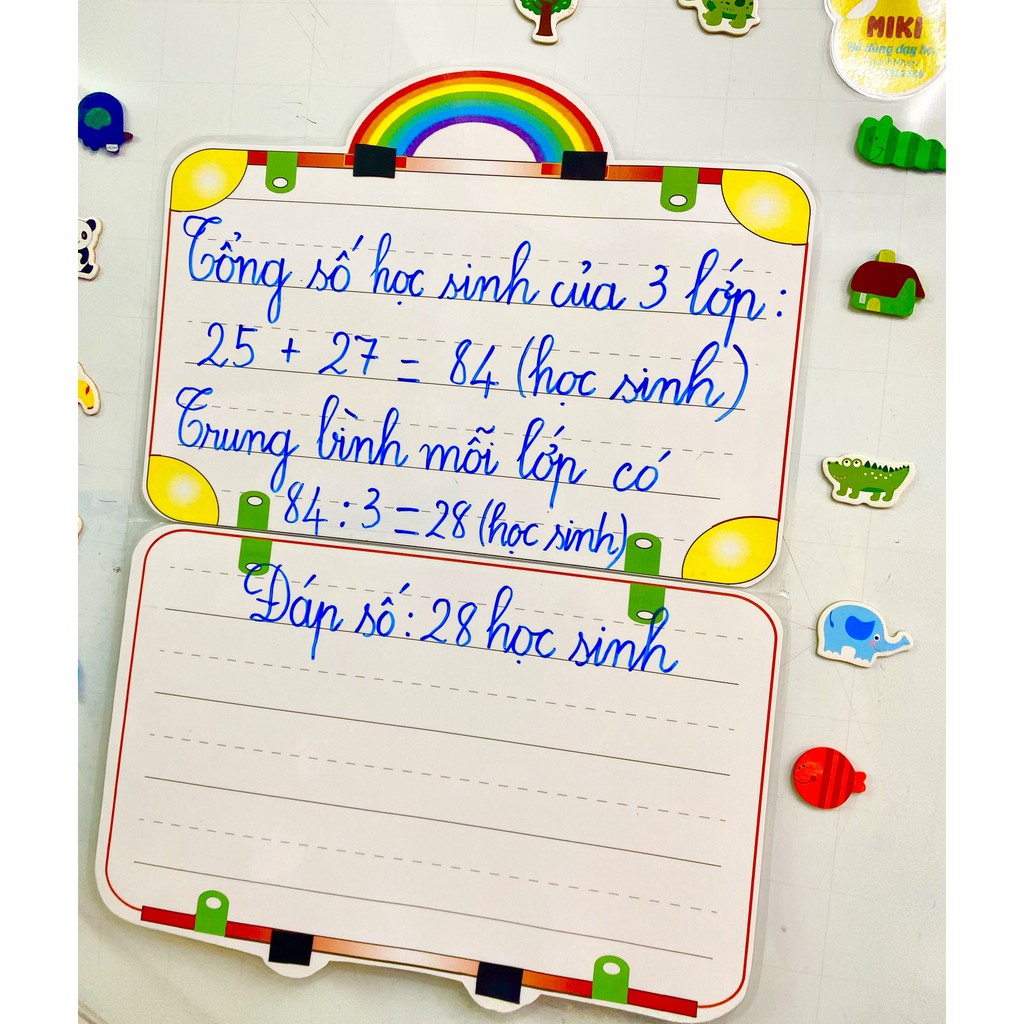 MIKI
Tổng số học sinh của 3 lớp:
25 + 27 = 84 (học sinh)
Trung bình mỗi lớp có
84 : 3 = 28 (học sinh)
Đáp số: 28 học sinh